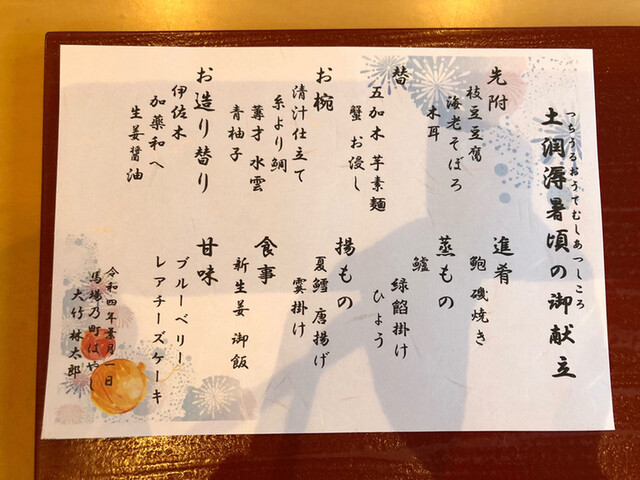 つちうるおうてむしあつしころ
土潤溽暑頃の御献立
先附
枝豆豆腐
海老そぼろ
木耳
替
五加木 芋素麺
蟹 お浸し
お椀
清汁仕立て
糸より鯛
蓴才 水雲
青柚子
お造り替り
伊佐木
加薬和へ
生姜醤油
進肴
鮑 磯焼き
蒸もの
鱸
緑餡掛け
ひょう
揚もの
夏鱈 唐揚げ
雲掛け
食事
新生姜 御飯
甘味
ブルーベリー
レアチーズケーキ
令和四年葉月一日
馬場乃町はやし
大竹 林太郎